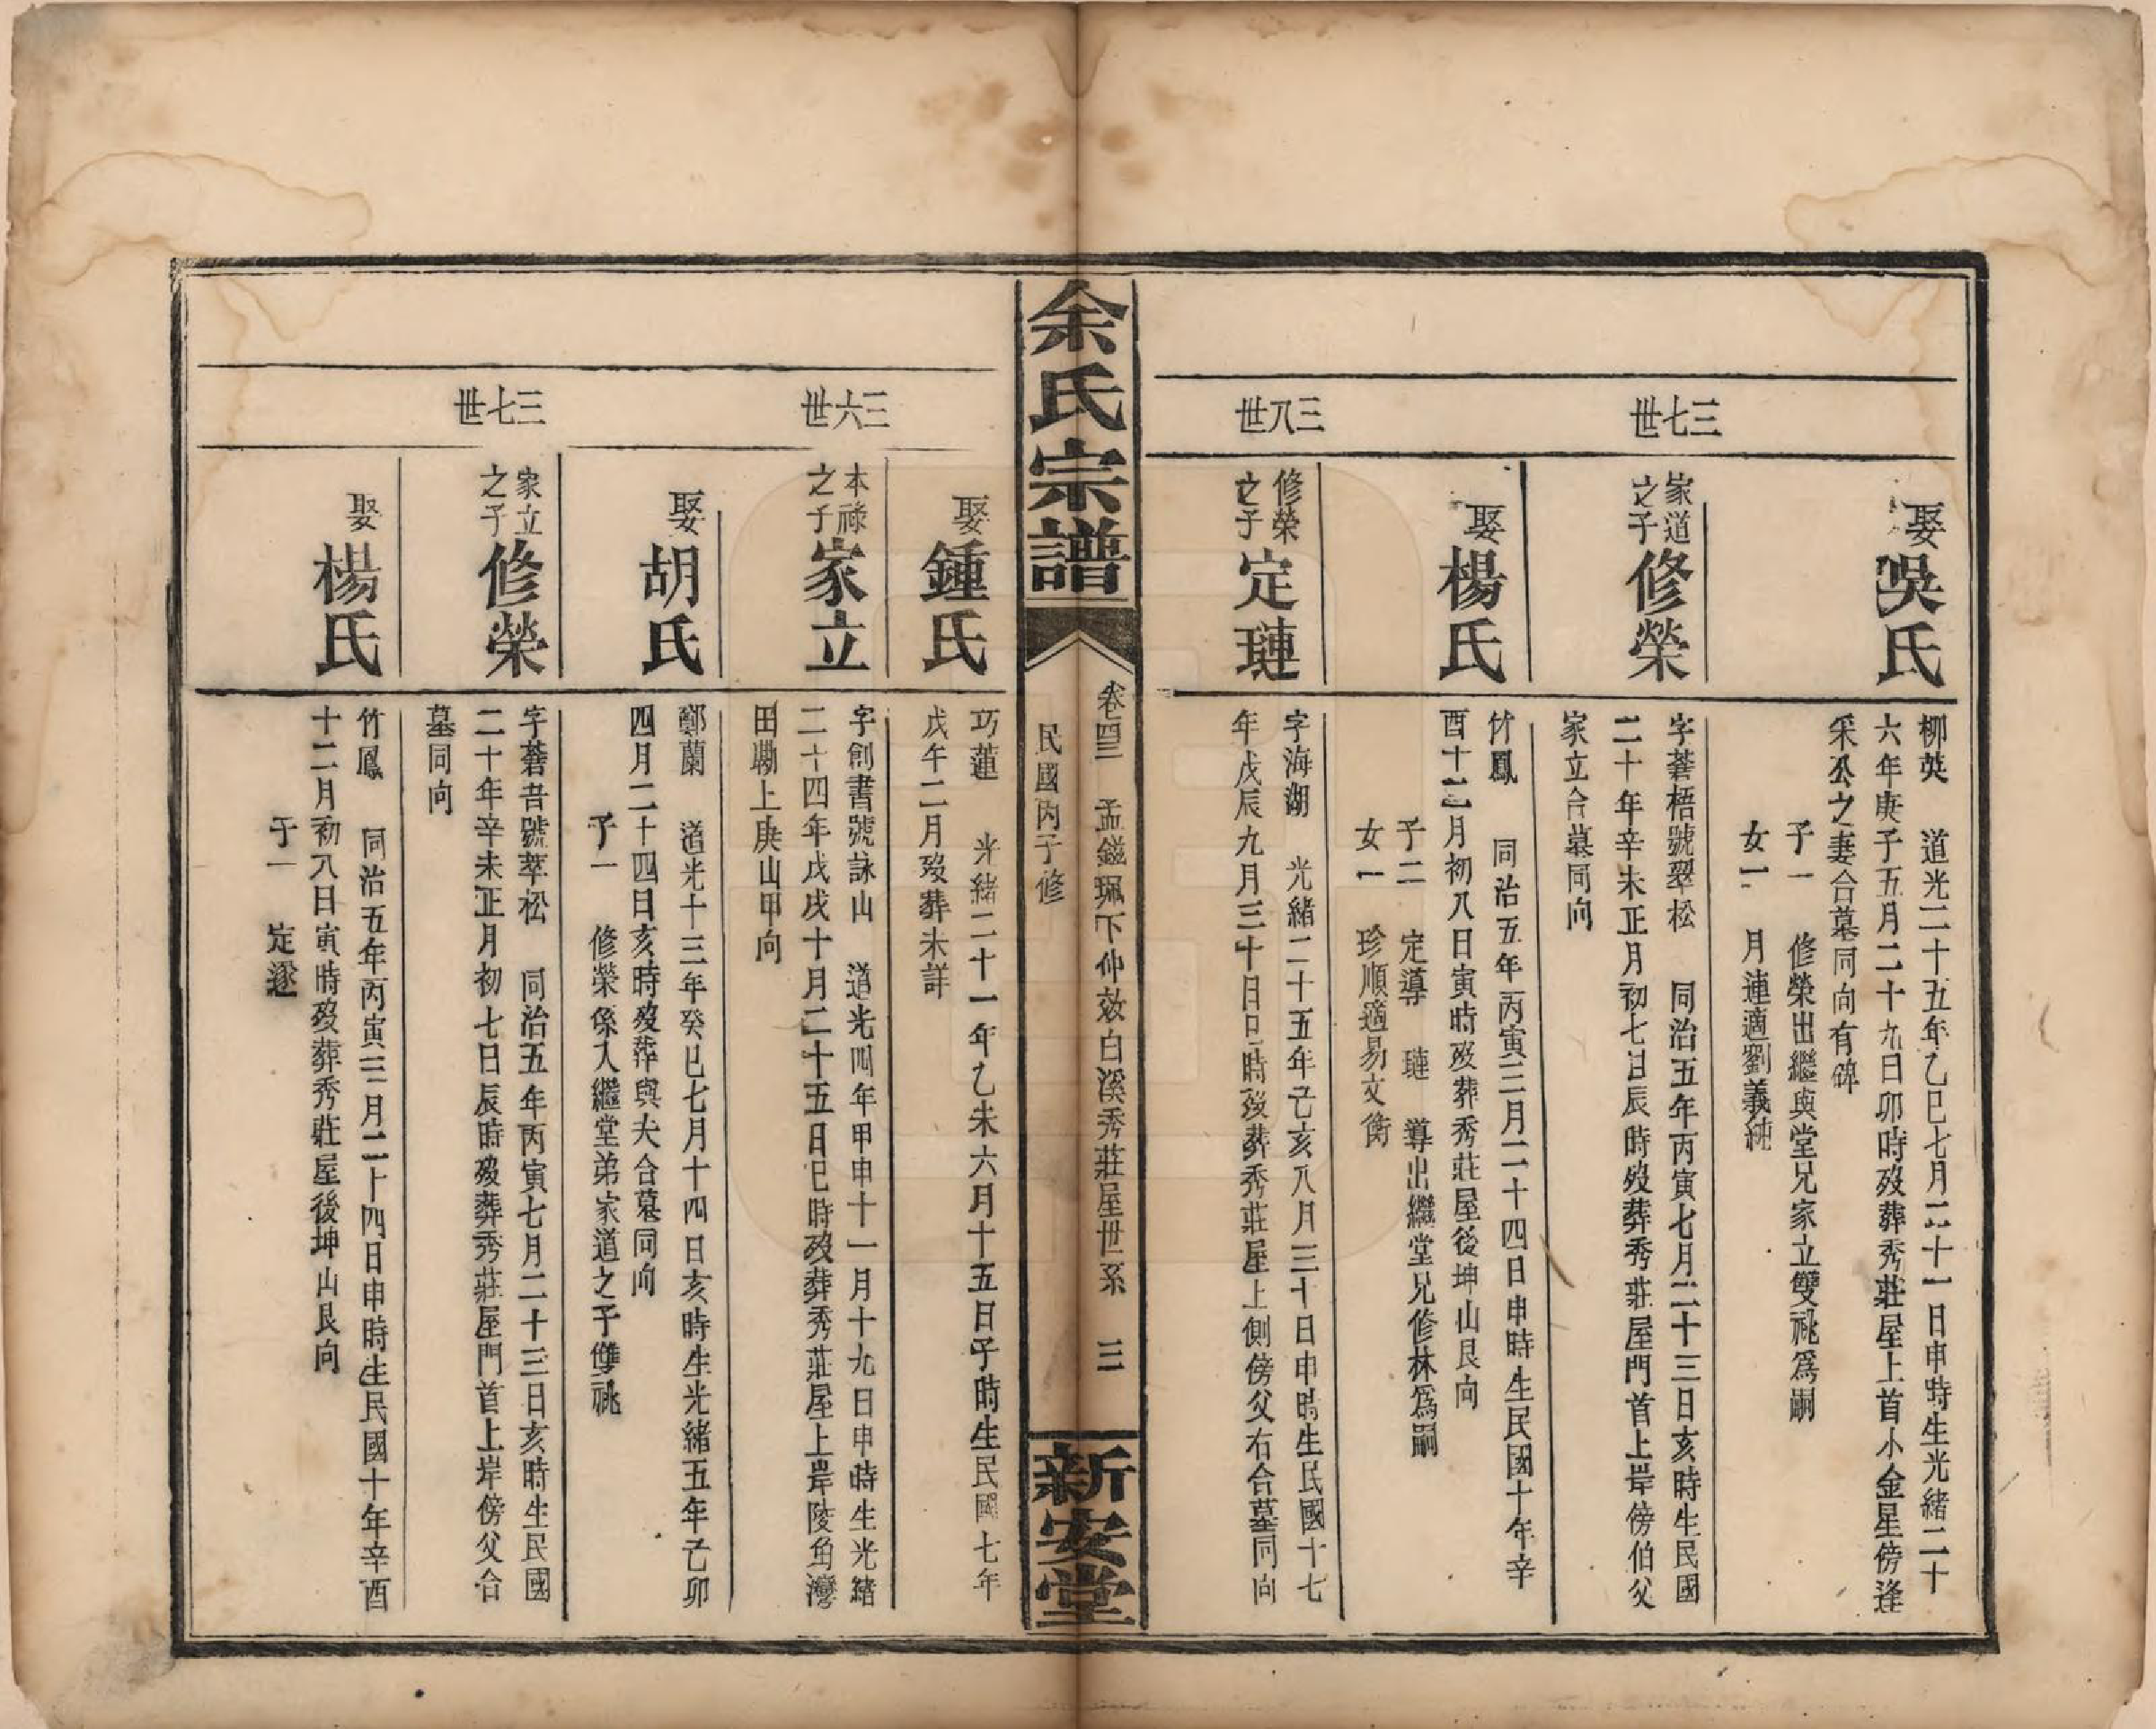 三七世
娶吳氏
柳英 道光二十五年乙巳七月二十一日申時生光緒二十
六年庚子五月二十九日卯時歿葬秀莊屋上首小金星傍逢
采公之妻合墓同向有碑
子一 修榮出繼與堂兄家立雙祧爲嗣
女一 月連適劉義純
家道之子修榮
字碁梧號翠松 同治五年丙寅七月二十三日亥時生民國
二十年辛未正月初七日辰時歿葬秀莊屋門首上岸傍伯父
家立合墓同向
娶楊氏
竹鳳 同治五年丙寅三月二十四日申時生民國十年辛
酉十二月初八日寅時歿葬秀莊屋後坤山艮向
子二 定導 璉 導出繼堂兄修林爲嗣
女一 珍順適易文衡
三八世
修榮之子定璉
字海湖 光緒二十五年己亥八月三十日申時生民國十七
年戊辰九月三十日巳時歿葬秀莊屋上側傍父右合墓同向
余氏宗譜
卷四三 孟鎡珮下仲效白溪秀莊屋世系 三
民國丙子修
新安堂
娶鍾氏
巧蓮 光緒二十一年乙未六月十五日子時生民國七年
戊午二月歿葬未詳
三六世
本祿之子家立
字創書號詠山 道光四年甲申十一月十九日申時生光緒
二十四年戊戌十月二十五日巳時歿葬秀莊屋上岸陵角灣
田墈上庚山甲向
娶胡氏
鄭蘭 道光十三年癸巳七月十四日亥時生光緒五年己卯
四月二十四日亥時歿葬與夫合墓同向
子一 修榮係入繼堂弟家道之子雙祧
三七世
家立之子修榮
字碁吾號翠松 同治五年丙寅七月二十三日亥時生民國
二十年辛未正月初七日辰時歿葬秀莊屋門首上岸傍父合
墓同向
娶楊氏
竹鳳 同治五年丙寅三月二十四日申時生民國十年辛酉
十二月初八日寅時歿葬秀莊屋後坤山艮向
子一 定遂